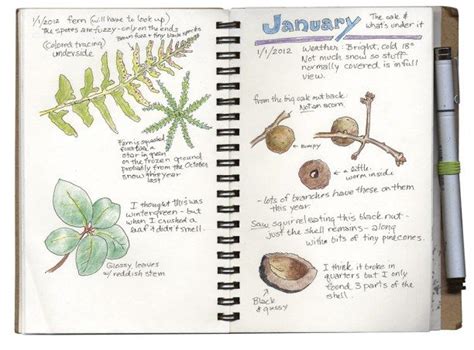 1/1/2012 fern (will have to look up)
The spores are fuzzy - only on the ends
Brown fuzz + tiny black specks
(Colored tracing)
underside
Ferny squashed
frosted, a
star in green
on the frozen ground
probably from the October
snow this year
last
I thought this was
wintergreen - but
when I crushed a
leaf it didn't smell.
Glossy leaves
w/ reddish stem
January
The oak &
what's under it
1/1/2012 Weather: Bright, cold 18°
Not much snow so stuff
normally covered is in full
view.
from the big oak out back.
Not an acorn.
bumpy
a little
worm inside
- lots of branches have these on them
this year.
Saw squirrel eating this black nut -
just the shell remains - along
with bits of tiny pinecones.
I think it broke in
quarters but I only
found 3 parts of the
shell.
Black
&